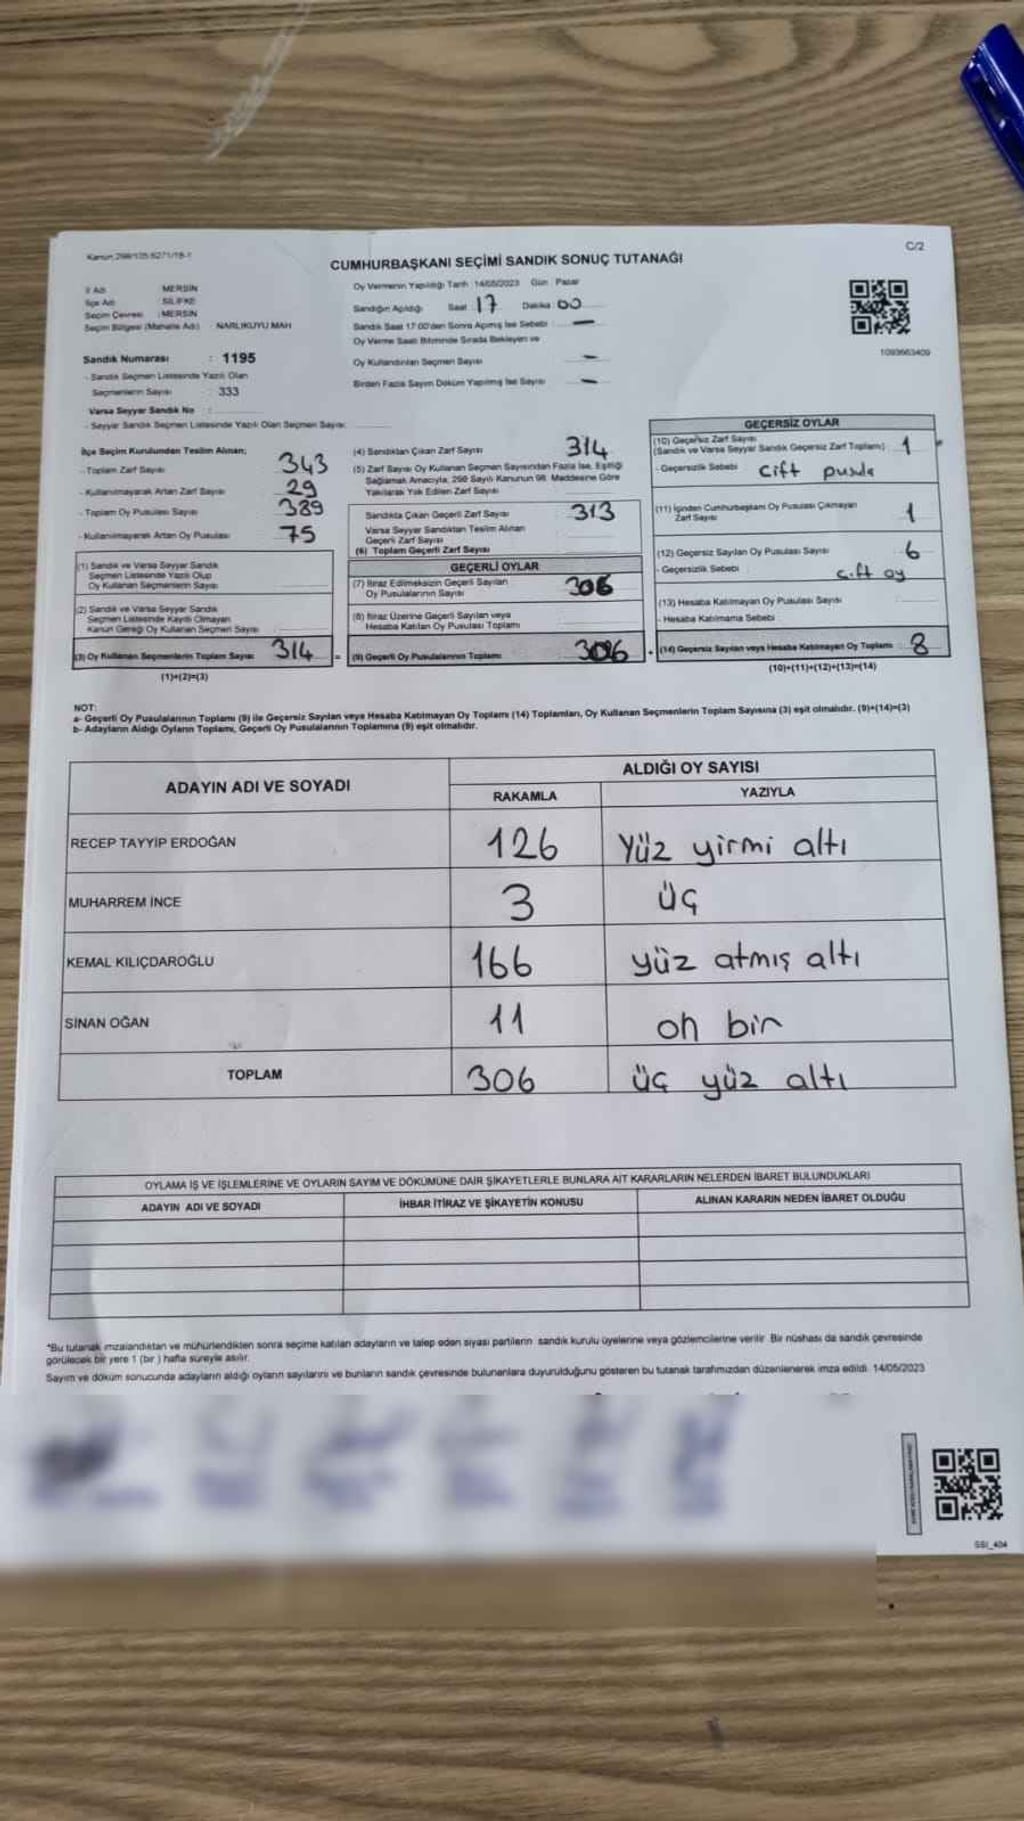 Kanun:298/105:6271/18-1
C/2
CUMHURBAŞKANI SEÇİMİ SANDIK SONUÇ TUTANAĞI
İl Adı : MERSİN
İlçe Adı : SİLİFKE
Seçim Çevresi : MERSİN
Seçim Bölgesi (Mahalle Adı) : NARLIKUYU MAH
Sandık Numarası : 1195
- Sandık Seçmen Listesinde Yazılı Olan
Seçmenlerin Sayısı : 333
Varsa Seyyar Sandık No :
- Seyyar Sandık Seçmen Listesinde Yazılı Olan Seçmen Sayısı:
Oy Vermenin Yapıldığı Tarih 14/05/2023 Gün Pazar
Sandığın Açıldığı Saat 17 Dakika 00
Sandık Saat 17:00'den Sonra Açılmış İse Sebebi : —
Oy Verme Saati Bitiminde Sırada Bekleyen ve
Oy Kullandırılan Seçmen Sayısı —
Birden Fazla Sayım Döküm Yapılmış İse Sayısı —
1093663409
İlçe Seçim Kurulundan Teslim Alınan;
- Toplam Zarf Sayısı 343
- Kullanılmayarak Artan Zarf Sayısı 29
- Toplam Oy Pusulası Sayısı 389
- Kullanılmayarak Artan Oy Pusulası 75
(1) Sandık ve Varsa Seyyar Sandık
Seçmen Listesinde Yazılı Olup
Oy Kullanan Seçmenlerin Sayısı
(2) Sandık ve Varsa Seyyar Sandık
Seçmen Listesinde Kayıtlı Olmayan
Kanun Gereği Oy Kullanan Seçmen Sayısı
(3) Oy Kullanan Seçmenlerin Toplam Sayısı 314 =
(1)+(2)=(3)
(4) Sandıktan Çıkan Zarf Sayısı 314
(5) Zarf Sayısı Oy Kullanan Seçmen Sayısından Fazla İse, Eşitliği
Sağlamak Amacıyla, 298 Sayılı Kanunun 98. Maddesine Göre
Yakılarak Yok Edilen Zarf Sayısı
Sandıkta Çıkan Geçerli Zarf Sayısı 313
Varsa Seyyar Sandıktan Teslim Alınan
Geçerli Zarf Sayısı
(6) Toplam Geçerli Zarf Sayısı
GEÇERLİ OYLAR
(7) İtiraz Edilmeksizin Geçerli Sayılan
Oy Pusulalarının Sayısı 306
(8) İtiraz Üzerine Geçerli Sayılan veya
Hesaba Katılan Oy Pusulası Toplamı
(9) Geçerli Oy Pusulalarının Toplamı 306 +
GEÇERSİZ OYLAR
(10) Geçersiz Zarf Sayısı
(Sandık ve Varsa Seyyar Sandık Geçersiz Zarf Toplamı) 1
- Geçersizlik Sebebi Cift pusula
(11) İçinden Cumhurbaşkanı Oy Pusulası Çıkmayan
Zarf Sayısı 1
(12) Geçersiz Sayılan Oy Pusulası Sayısı 6
- Geçersizlik Sebebi cift oy
(13) Hesaba Katılmayan Oy Pusulası Sayısı
- Hesaba Katılmama Sebebi
(14) Geçersiz Sayılan veya Hesaba Katılmayan Oy Toplamı 8
(10)+(11)+(12)+(13)=(14)
NOT:
a- Geçerli Oy Pusulalarının Toplamı (9) ile Geçersiz Sayılan veya Hesaba Katılmayan Oy Toplamı (14) Toplamları, Oy Kullanan Seçmenlerin Toplam Sayısına (3) eşit olmalıdır. (9)+(14)=(3)
b- Adayların Aldığı Oyların Toplamı, Geçerli Oy Pusulalarının Toplamına (9) eşit olmalıdır.
ADAYIN ADI VE SOYADI
ALDIĞI OY SAYISI
RAKAMLA YAZIYLA
RECEP TAYYİP ERDOĞAN 126 Yüz yirmi altı
MUHARREM İNCE 3 üç
KEMAL KILIÇDAROĞLU 166 yüz atmış altı
SİNAN OĞAN 11 on bir
TOPLAM 306 üç yüz altı
OYLAMA İŞ VE İŞLEMLERİNE VE OYLARIN SAYIM VE DÖKÜMÜNE DAİR ŞİKAYETLERLE BUNLARA AİT KARARLARIN NELERDEN İBARET BULUNDUKLARI
ADAYIN ADI VE SOYADI İHBAR İTİRAZ VE ŞİKAYETİN KONUSU ALINAN KARARIN NEDEN İBARET OLDUĞU
*Bu tutanak imzalandıktan ve mühürlendikten sonra seçime katılan adayların ve talep eden siyasi partilerin sandık kurulu üyelerine veya gözlemcilerine verilir. Bir nüshası da sandık çevresinde
görülecek bir yere 1 (bir) hafta süreyle asılır.
Sayım ve döküm sonucunda adayların aldığı oyların sayılarını ve bunların sandık çevresinde bulunanlara duyurulduğunu gösteren bu tutanak tarafımızdan düzenlenerek imza edildi. 14/05/2023
SSI_404